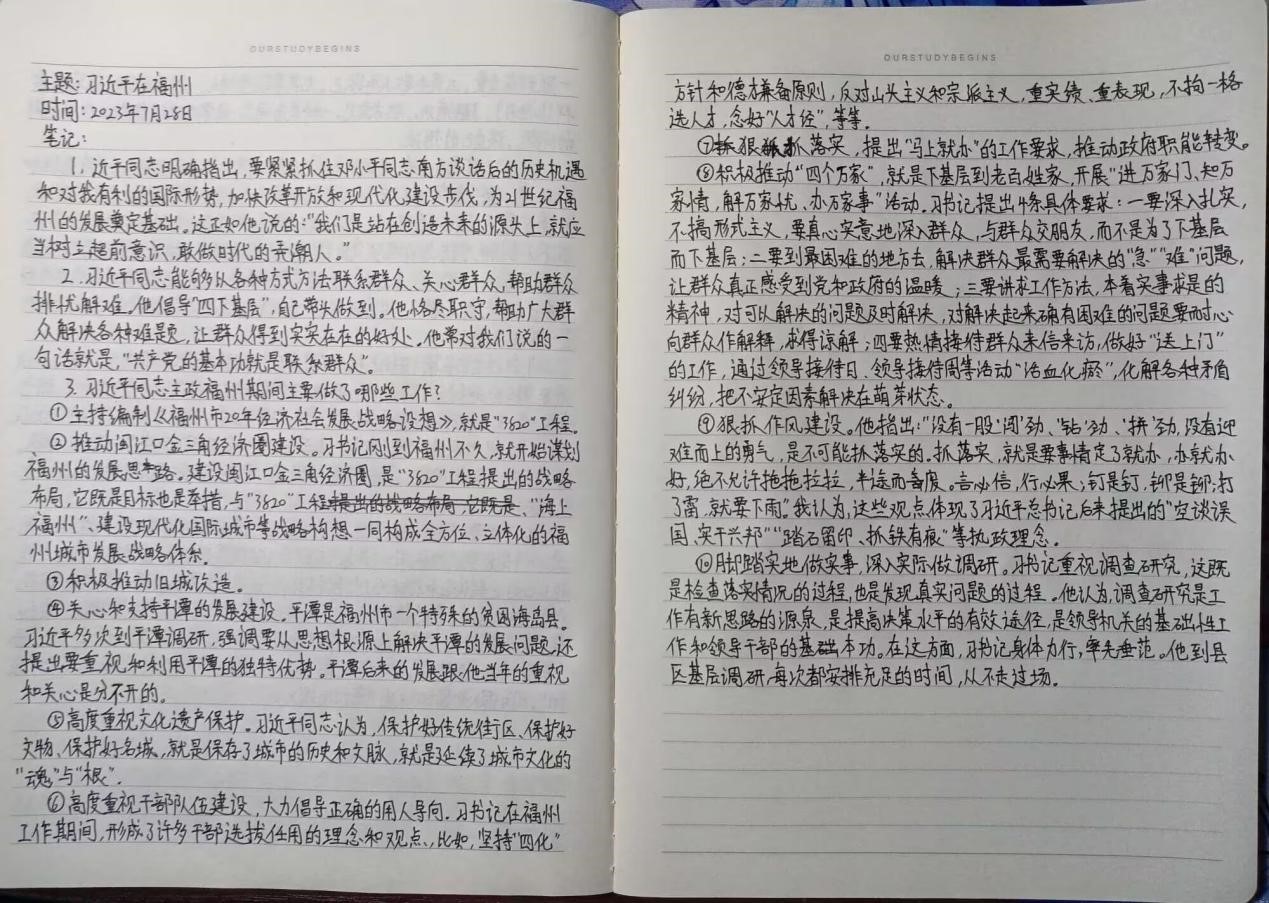 OURSTUDYBEGINS
主题：习近平在福州
时间：2023年7月28日
笔记：
1. 近平同志明确指出，要紧紧抓住邓小平同志南方谈话后的历史机遇
和对我有利的国际形势，加快改革开放和现代化建设步伐，为21世纪福
州的发展奠定基础。这正如他说的："我们是站在创造未来的源头上，就应
当树立超前意识，敢做时代的弄潮人。"
2. 习近平同志能够从各种方式方法联系群众、关心群众，帮助群众
排忧解难。他倡导"四下基层"，自己带头做到。他恪尽职守，帮助广大群
众解决各种难题，让群众得到实实在在的好处。他常对我们说的一
句话就是，"共产党的基本功就是联系群众"。
3. 习近平同志主政福州期间主要做了哪些工作？
①主持编制《福州市20年经济社会发展战略设想》，就是"3820"工程。
②推动闽江口金三角经济圈建设。习书记刚到福州不久，就开始谋划
福州的发展思路。建设闽江口金三角经济圈，是"3820"工程提出的战略
布局，它既是目标也是举措，与"3820"工程提出的战略布局，它既是、"海上
福州"、建设现代化国际城市等战略构想一同构成全方位、立体化的福
州城市发展战略体系。
③积极推动旧城改造。
④关心和支持平潭的发展建设。平潭是福州市一个特殊的贫困海岛县。
习近平多次到平潭调研，强调要从思想根源上解决平潭的发展问题，还
提出要重视和利用平潭的独特优势。平潭后来的发展跟他当年的重视
和关心是分不开的。
⑤高度重视文化遗产保护。习近平同志认为，保护好传统街区、保护好
文物、保护好名城，就是保存了城市的历史和文脉，就是延续了城市文化的
"魂"与"根"。
⑥高度重视干部队伍建设，大力倡导正确的用人导向。习书记在福州
工作期间，形成了许多干部选拔任用的理念和观点，比如，坚持"四化"
OURSTUDYBEGINS
方针和德才兼备原则，反对山头主义和宗派主义，重实绩、重表现，不拘一格
选人才，念好"人才经"，等等。
⑦狠抓落实，提出"马上就办"的工作要求，推动政府职能转变。
⑧积极推动"四个万家"，就是下基层到老百姓家，开展"进万家门、知万
家情、解万家忧、办万家事"活动。习书记提出4条具体要求：一要深入扎实，
不搞形式主义，要真心实意地深入群众，与群众交朋友，而不是为了下基层
而下基层；二要到最困难的地方去，解决群众最需要解决的"急""难"问题，
让群众真正感受到党和政府的温暖；三要讲求工作方法，本着实事求是的
精神，对可以解决的问题及时解决，对解决起来确有困难的问题要耐心
向群众作解释，求得谅解；四要热情接待群众来信来访，做好"送上门"
的工作，通过领导接待日、领导接待周等活动"活血化瘀"，化解各种矛盾
纠纷，把不安定因素解决在萌芽状态。
⑨狠抓作风建设。他指出："没有一股'闯'劲、'钻'劲、'拼'劲，没有迎
难而上的勇气，是不可能抓落实的。抓落实，就是要事情定了就办，办就办
好，绝不允许拖拖拉拉，半途而废。言必信，行必果；钉是钉，铆是铆；打
了雷，就要下雨。"我认为，这些观点体现了习近平总书记后来提出的"空谈误
国、实干兴邦""踏石留印、抓铁有痕"等执政理念。
⑩脚踏实地做实事，深入实际做调研。习书记重视调查研究，这既
是检查落实情况的过程，也是发现真实问题的过程。他认为，调查研究是工
作有新思路的源泉，是提高决策水平的有效途径，是领导机关的基础性工
作和领导干部的基本功。在这方面，习书记身体力行，率先垂范。他到县
区基层调研，每次都安排充足的时间，从不走过场。